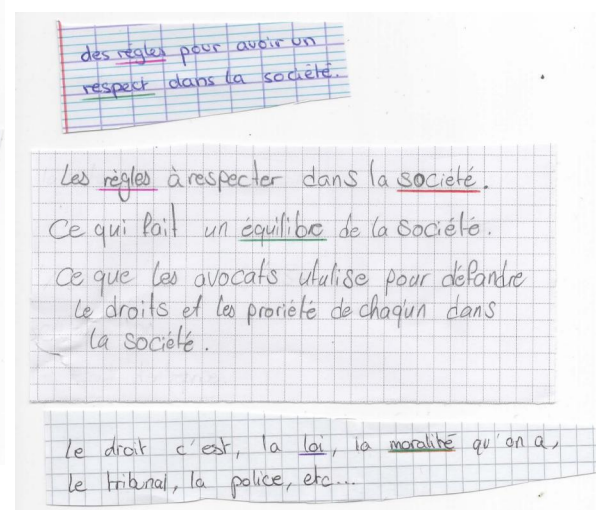 des régles pour avoir un
respect dans la société.
Les règles à respecter dans la société.
Ce qui fait un équilibre de la société.
Ce que les avocats utulise pour défandre
le droits et les proriété de chaqun dans
la société.
Le droit c'est, la loi, la moralité qu'on a,
le tribunal, la police, etc...